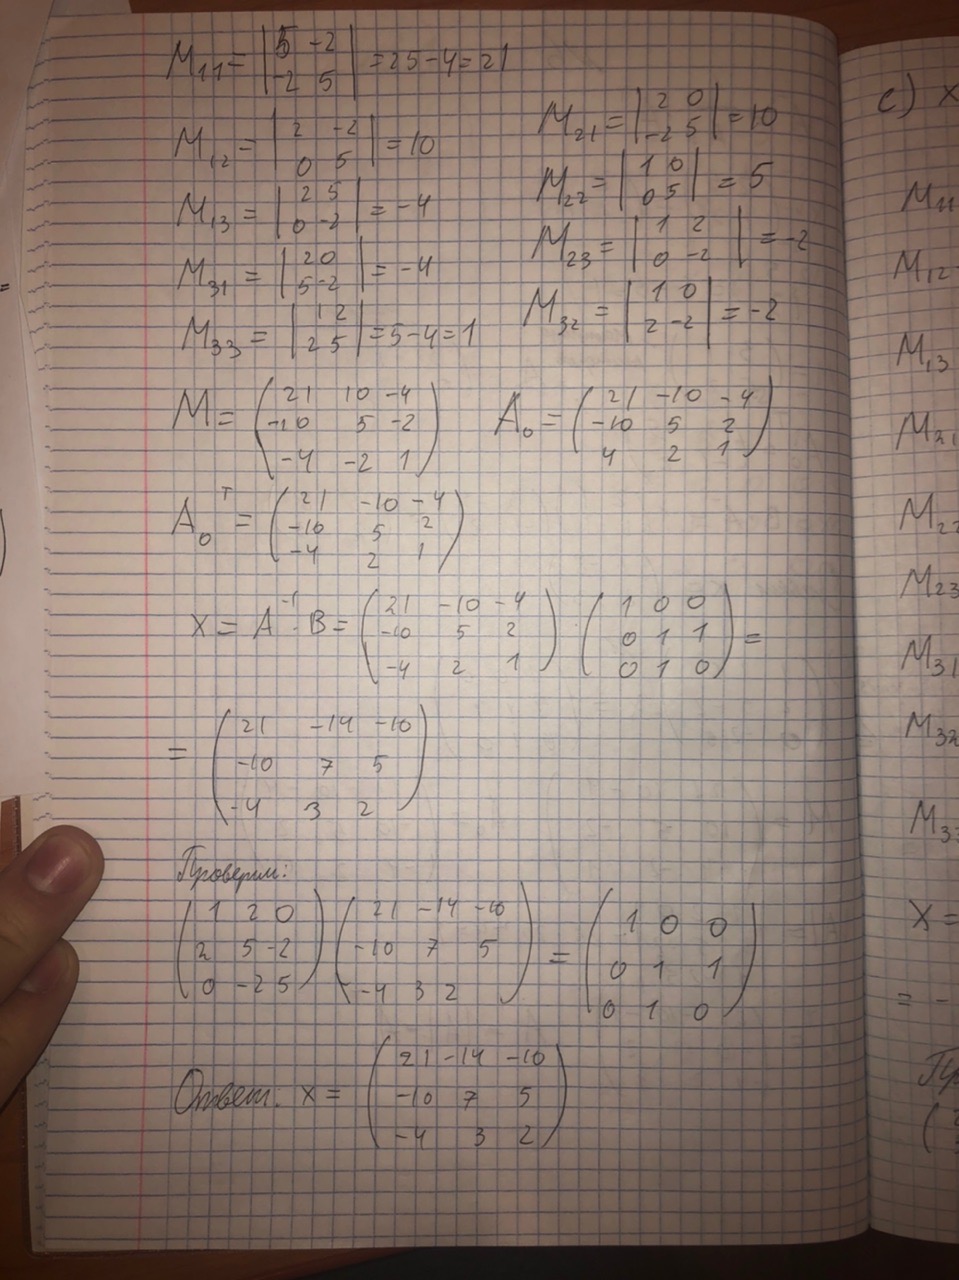 M₁₁ = |5 -2; -2 5| = 25-4 = 21
M₁₂ = |2 -2; 0 5| = 10
M₁₃ = |2 5; 0 -2| = -4
M₃₁ = |2 0; 5 -2| = -4
M₃₃ = |1 2; 2 5| = 5-4 = 1
M₂₁ = |2 0; -2 5| = 10
M₂₂ = |1 0; 0 5| = 5
M₂₃ = |1 2; 0 -2| = -2
M₃₂ = |1 0; 2 -2| = -2
M = (21 10 -4; -10 5 -2; -4 -2 1)
A₀ = (21 -10 -4; -10 5 2; 4 2 1)
A₀ᵀ = (21 -10 -4; -10 5 2; -4 2 1)
X = A⁻¹ · B = (21 -10 -4; -10 5 2; -4 2 1) · (1 0 0; 0 1 1; 0 1 0) =
= (21 -14 -10; -10 7 5; -4 3 2)
Проверим:
(1 2 0; 2 5 -2; 0 -2 5) (21 -14 -10; -10 7 5; -4 3 2) = (1 0 0; 0 1 1; 0 1 0)
Ответ: X = (21 -14 -10; -10 7 5; -4 3 2)
c) X
M₁₁
M₁₂
M₁₃
M₂₁
M₂₂
M₂₃
M₃₁
M₃₂
M₃₃
X =
= -